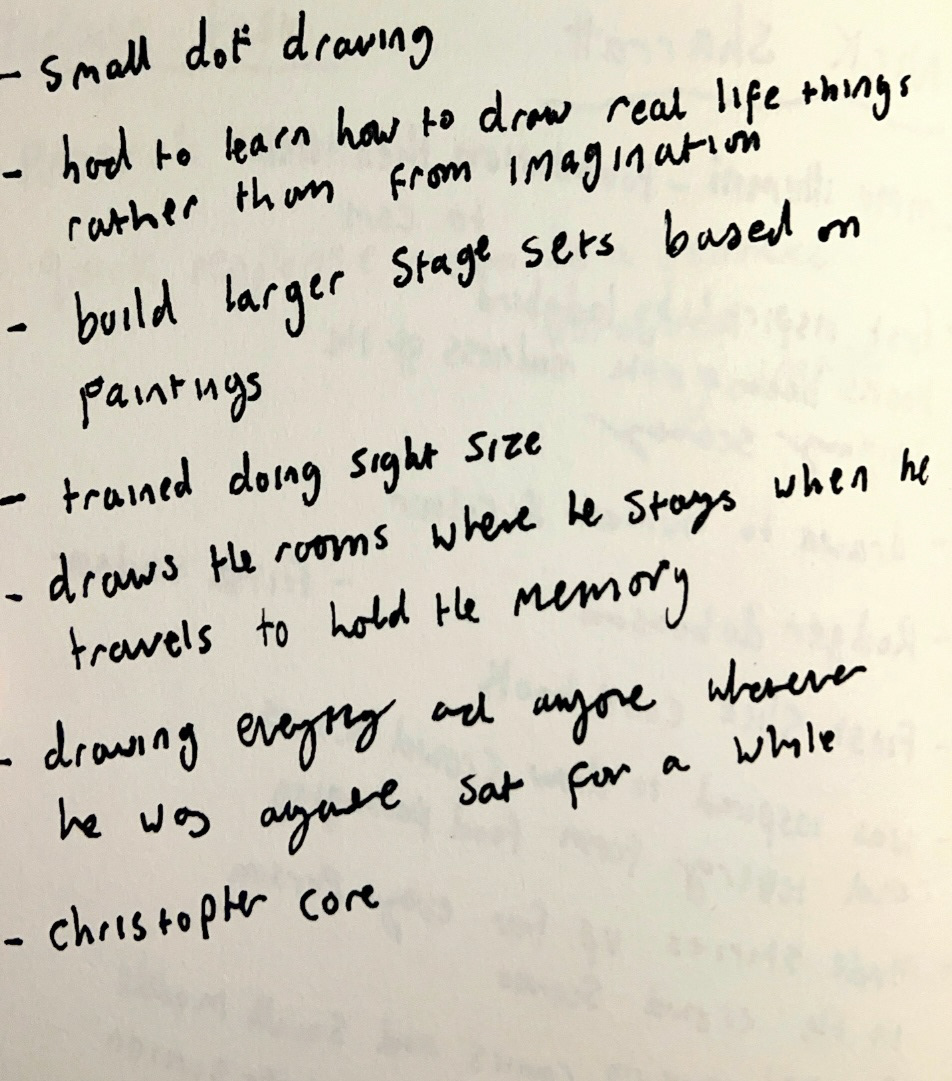 - small dot drawing
- had to learn how to draw real life things
rather than from imagination
- build larger stage sets based on
paintings
- trained doing sight size
- draws the rooms where he stays when he
travels to hold the memory
- drawing everything and anyone wherever
he was sat for a while
- christopher core